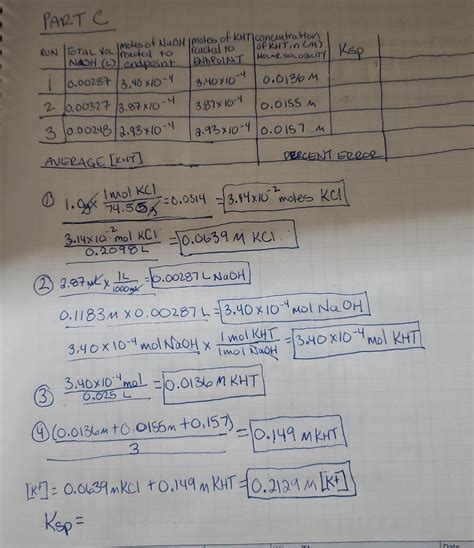 PART C
RUN TOTAL VOL NaOH (L) moles of NaOH reacted to endpoint moles of KHT reacted to ENDPOINT concentration of KHT, n (M) MOLAR SOLUBILITY Ksp
1 0.00287 3.40x10⁻⁴ 3.40x10⁻⁴ 0.0136 M
2 0.00327 3.87x10⁻⁴ 3.87x10⁻⁴ 0.0155 M
3 0.00248 2.93x10⁻⁴ 2.93x10⁻⁴ 0.0157 M
AVERAGE [KHT] PERCENT ERROR
① 1.0g x 1mol KCl / 74.55g = 0.0314 = 3.14x10⁻² moles KCl
3.14x10⁻² mol KCl / 0.2098 L = 0.0639 M KCl
② 2.87 mL x 1L / 1000mL = 0.00287 L NaOH
0.1183 M x 0.00287 L = 3.40x10⁻⁴ mol NaOH
3.40x10⁻⁴ mol NaOH x 1 mol KHT / 1 mol NaOH = 3.40x10⁻⁴ mol KHT
③ 3.40x10⁻⁴ mol / 0.025 L = 0.0136 M KHT
④ (0.0136M + 0.0155M + 0.157) / 3 = 0.149 M KHT
[K⁺] = 0.0639 M KCl + 0.149 M KHT = 0.2129 M [K⁺]
Ksp =